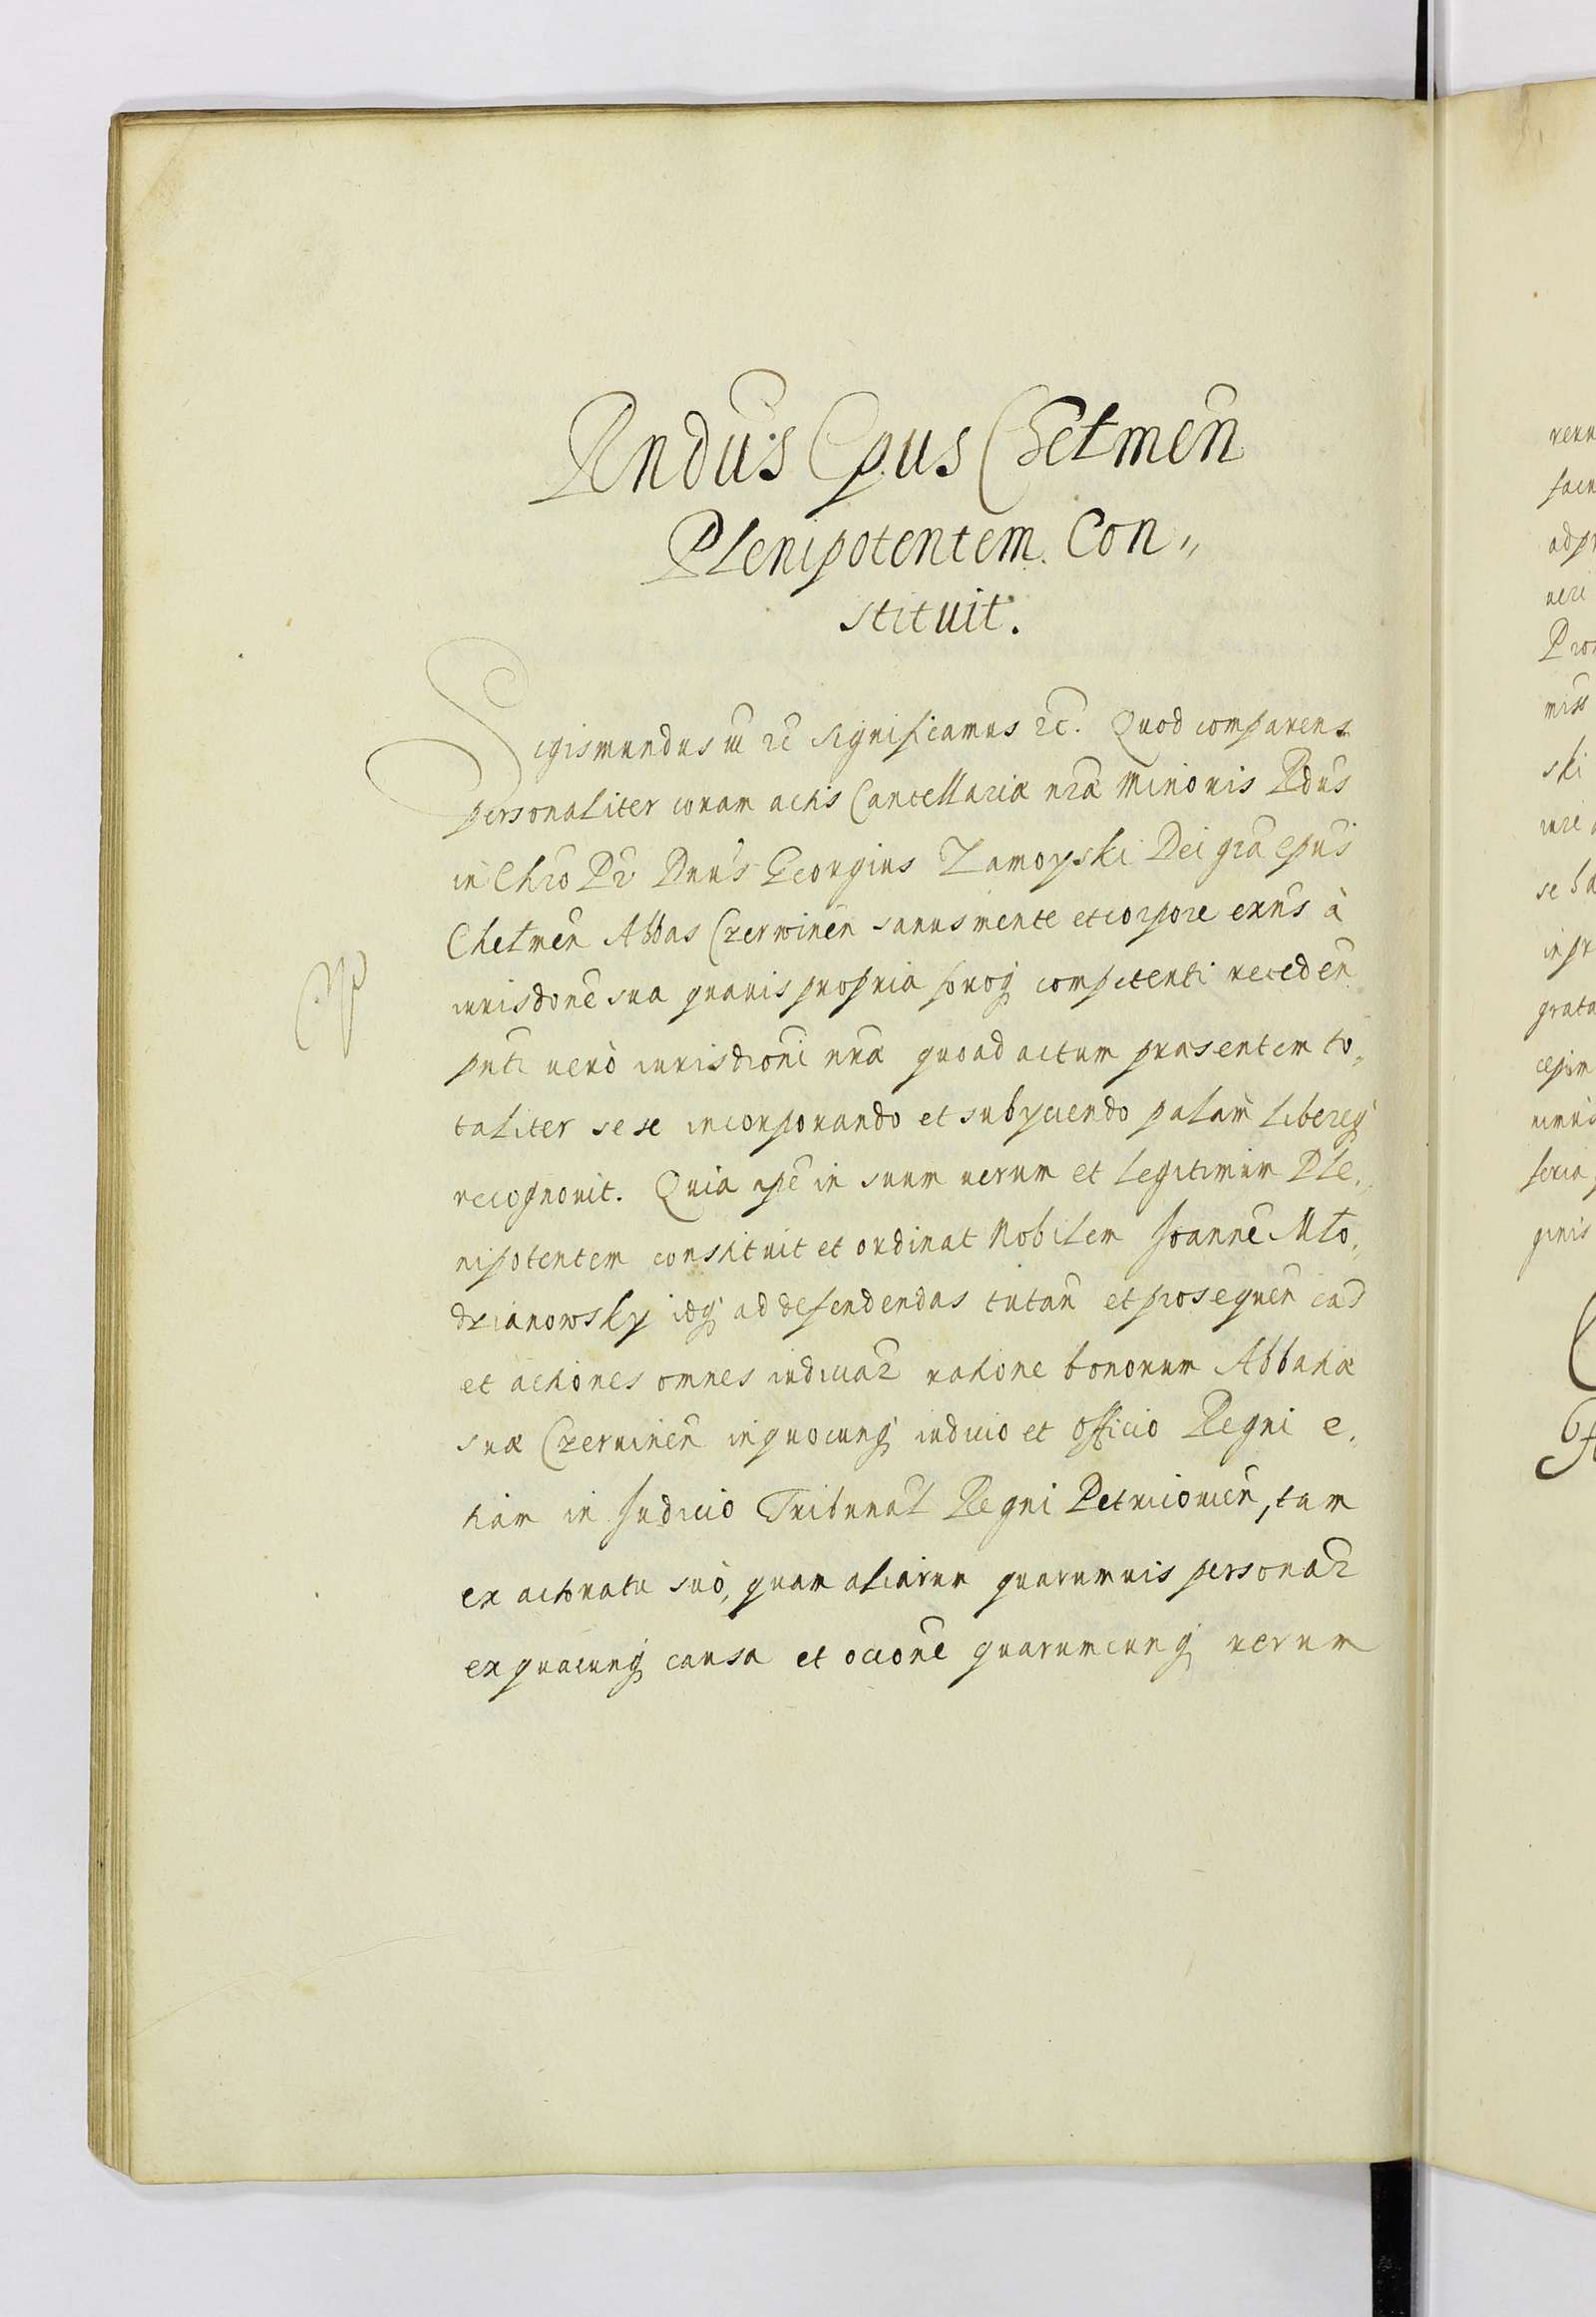 Rndus Epus Chełmen
Plenipotentem Con„
stituit.
Sigismundus III &c Significamus &c. Quod comparens
personaliter coram actis Cancellariæ nræ Minoris Rdus
in Chro Pr Dnus Georgius Zamoyski Dei gra Epus
Chełmen Abbas Czerwinen sanus mente et corpore exns à
iurisdone sua quavis propria foroq competenti receden
pnti vero iurisdioni nræ quoad actum præsentem to„
taliter sese incorporando et subyciendo palam libereq
recognovit. Quia ipe in suum verum et legitimum Ple„
nipotentem constituit et ordinat Nobilem Joanne Mło„
dzianowsky idq ad defendendas tutan et prosequen cas
et actiones omnes iudiciar ratione bonorum Abbatiæ
suæ Czervinen in quocunq iudicio et Officio Regni e„
tiam in Judicio Tribunal Regni Petricovien, tam
ex actoratu suo, quam aliarum quarumvis personar
ex quacunq causa et occione quarumcunq rerum